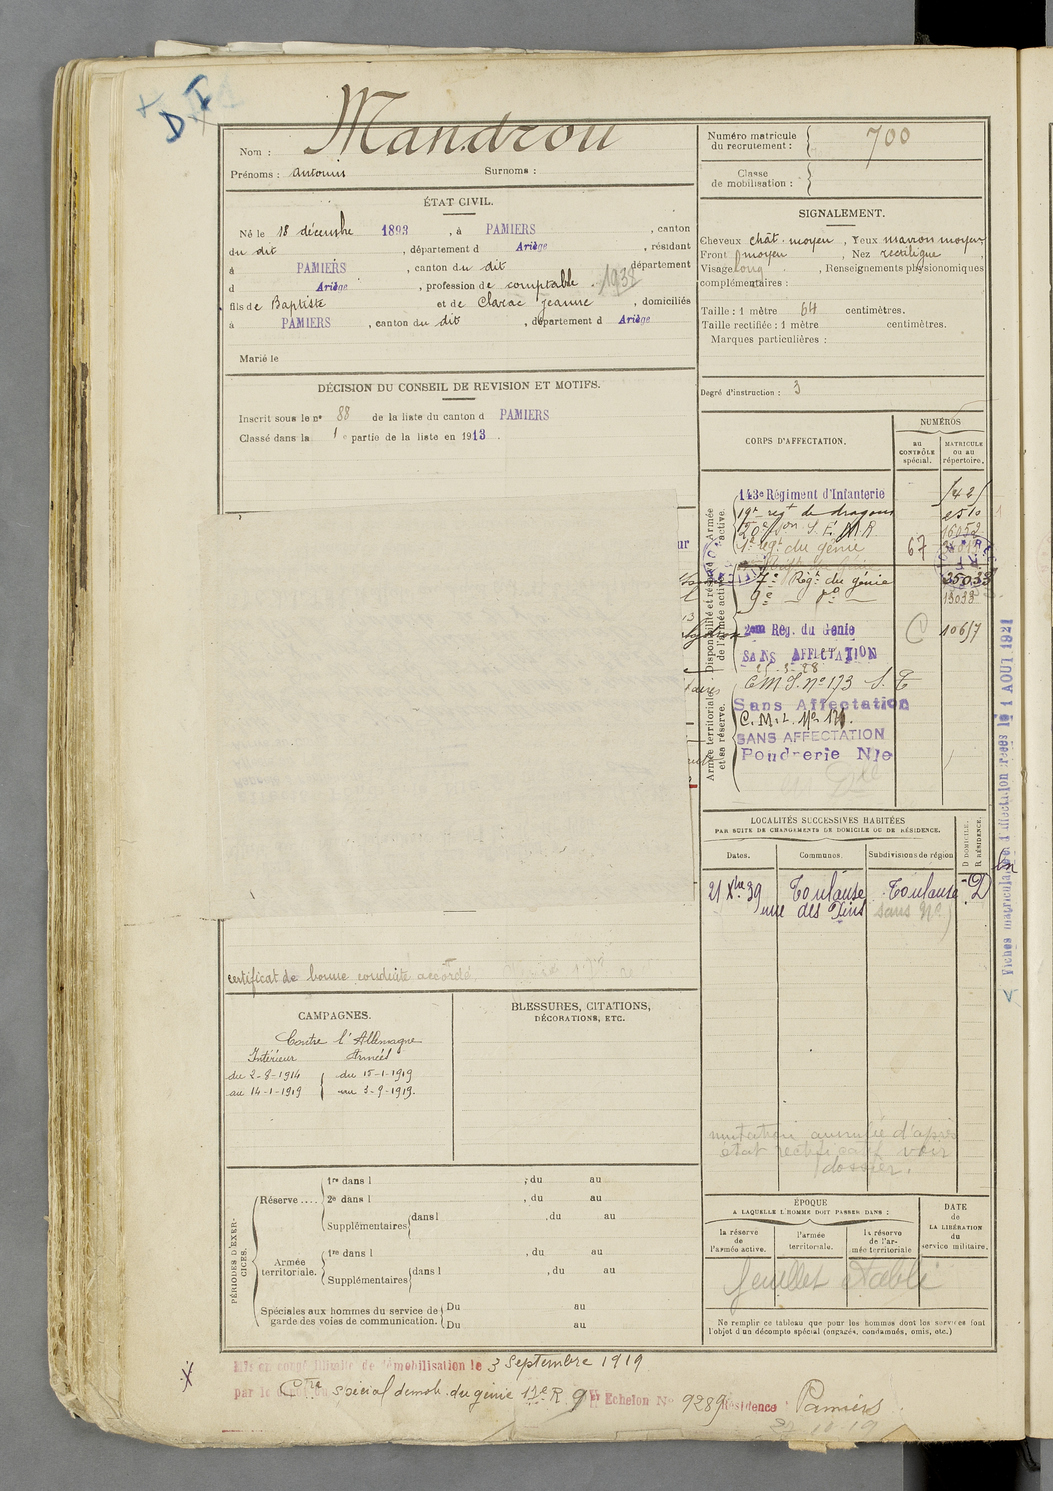 Mandrou
Nom :
Prénoms : antonin Surnoms :
ÉTAT CIVIL.
Né le 18 décembre 1893, à PAMIERS, canton
du dit, département d Ariège, résidant
à PAMIERS, canton du dit département
d Ariège, profession de comptable. 1938
fils de Baptiste et de Clarac Jeanne, domiciliés
à PAMIERS, canton du dit, département d Ariège
Marié le
DÉCISION DU CONSEIL DE REVISION ET MOTIFS.
Inscrit sous le nº 88 de la liste du canton d PAMIERS
Classé dans la 1e partie de la liste en 1913.
certificat de bonne conduite accordé.
CAMPAGNES.
Contre l'Allemagne
Intérieur Armées
du 2-8-1914 du 15-1-1919
au 14-1-1919 au 3-9-1919.
BLESSURES, CITATIONS,
DÉCORATIONS, ETC.
PÉRIODES D'EXERCICES.
Réserve .... 1re dans l , du au
2e dans l , du au
Supplémentaires dans l , du au
Armée territoriale. 1re dans l , du au
Supplémentaires dans l , du au
Spéciales aux hommes du service de garde des voies de communication. Du au
Du au
Numéro matricule
du recrutement : 700
Classe
de mobilisation :
SIGNALEMENT.
Cheveux chât. moyen, Yeux marron moyen,
Front moyen, Nez rectiligne,
Visage long, Renseignements physionomiques
complémentaires :
Taille : 1 mètre 64 centimètres.
Taille rectifiée : 1 mètre centimètres.
Marques particulières :
Degré d'instruction : 3
CORPS D'AFFECTATION.
NUMÉROS
au CONTRÔLE spécial.
MATRICULE ou au répertoire.
Armée active.
Disponibilité et réserve de l'armée active.
Armée territoriale et sa réserve.
143e Régiment d'Infanterie
19e régt de dragons 2510
20e son S.E.M.R. 16052
1er régt du génie 67
7e Régt du génie 35033
9e — do — 13038
2em Rég. du Genie C 10617
SANS AFFECTATION
C M I. nº 173 S. T
Sans Affectation
C. M. L.
SANS AFFECTATION
Poudrerie Nle
LOCALITÉS SUCCESSIVES HABITÉES
PAR SUITE DE CHANGEMENTS DE DOMICILE OU DE RÉSIDENCE.
Dates. Communes. Subdivisions de région
D DOMICILE.
R RÉSIDENCE.
21 Xbre 39 Toulouse Toulouse D
rue des Pins sans No
mutation annulée d'après
état rectificatif voir
dossier.
ÉPOQUE
A LAQUELLE L'HOMME DOIT PASSER DANS :
la réserve de l'armée active.
l'armée territoriale.
la réserve de l'armée territoriale
DATE de LA LIBÉRATION du service militaire.
feuillet établi
Ne remplir ce tableau que pour les hommes dont les services font
l'objet d'un décompte spécial (engagés, condamnés, omis, etc.)
Fiches matricules
1 AOUT 1921
Mis en congé illimité de démobilisation le 3 Septembre 1919
par le dépôt du Ctre spécial démob. du génie 17e R 9e Echelon No 9289 Résidence Pamiers